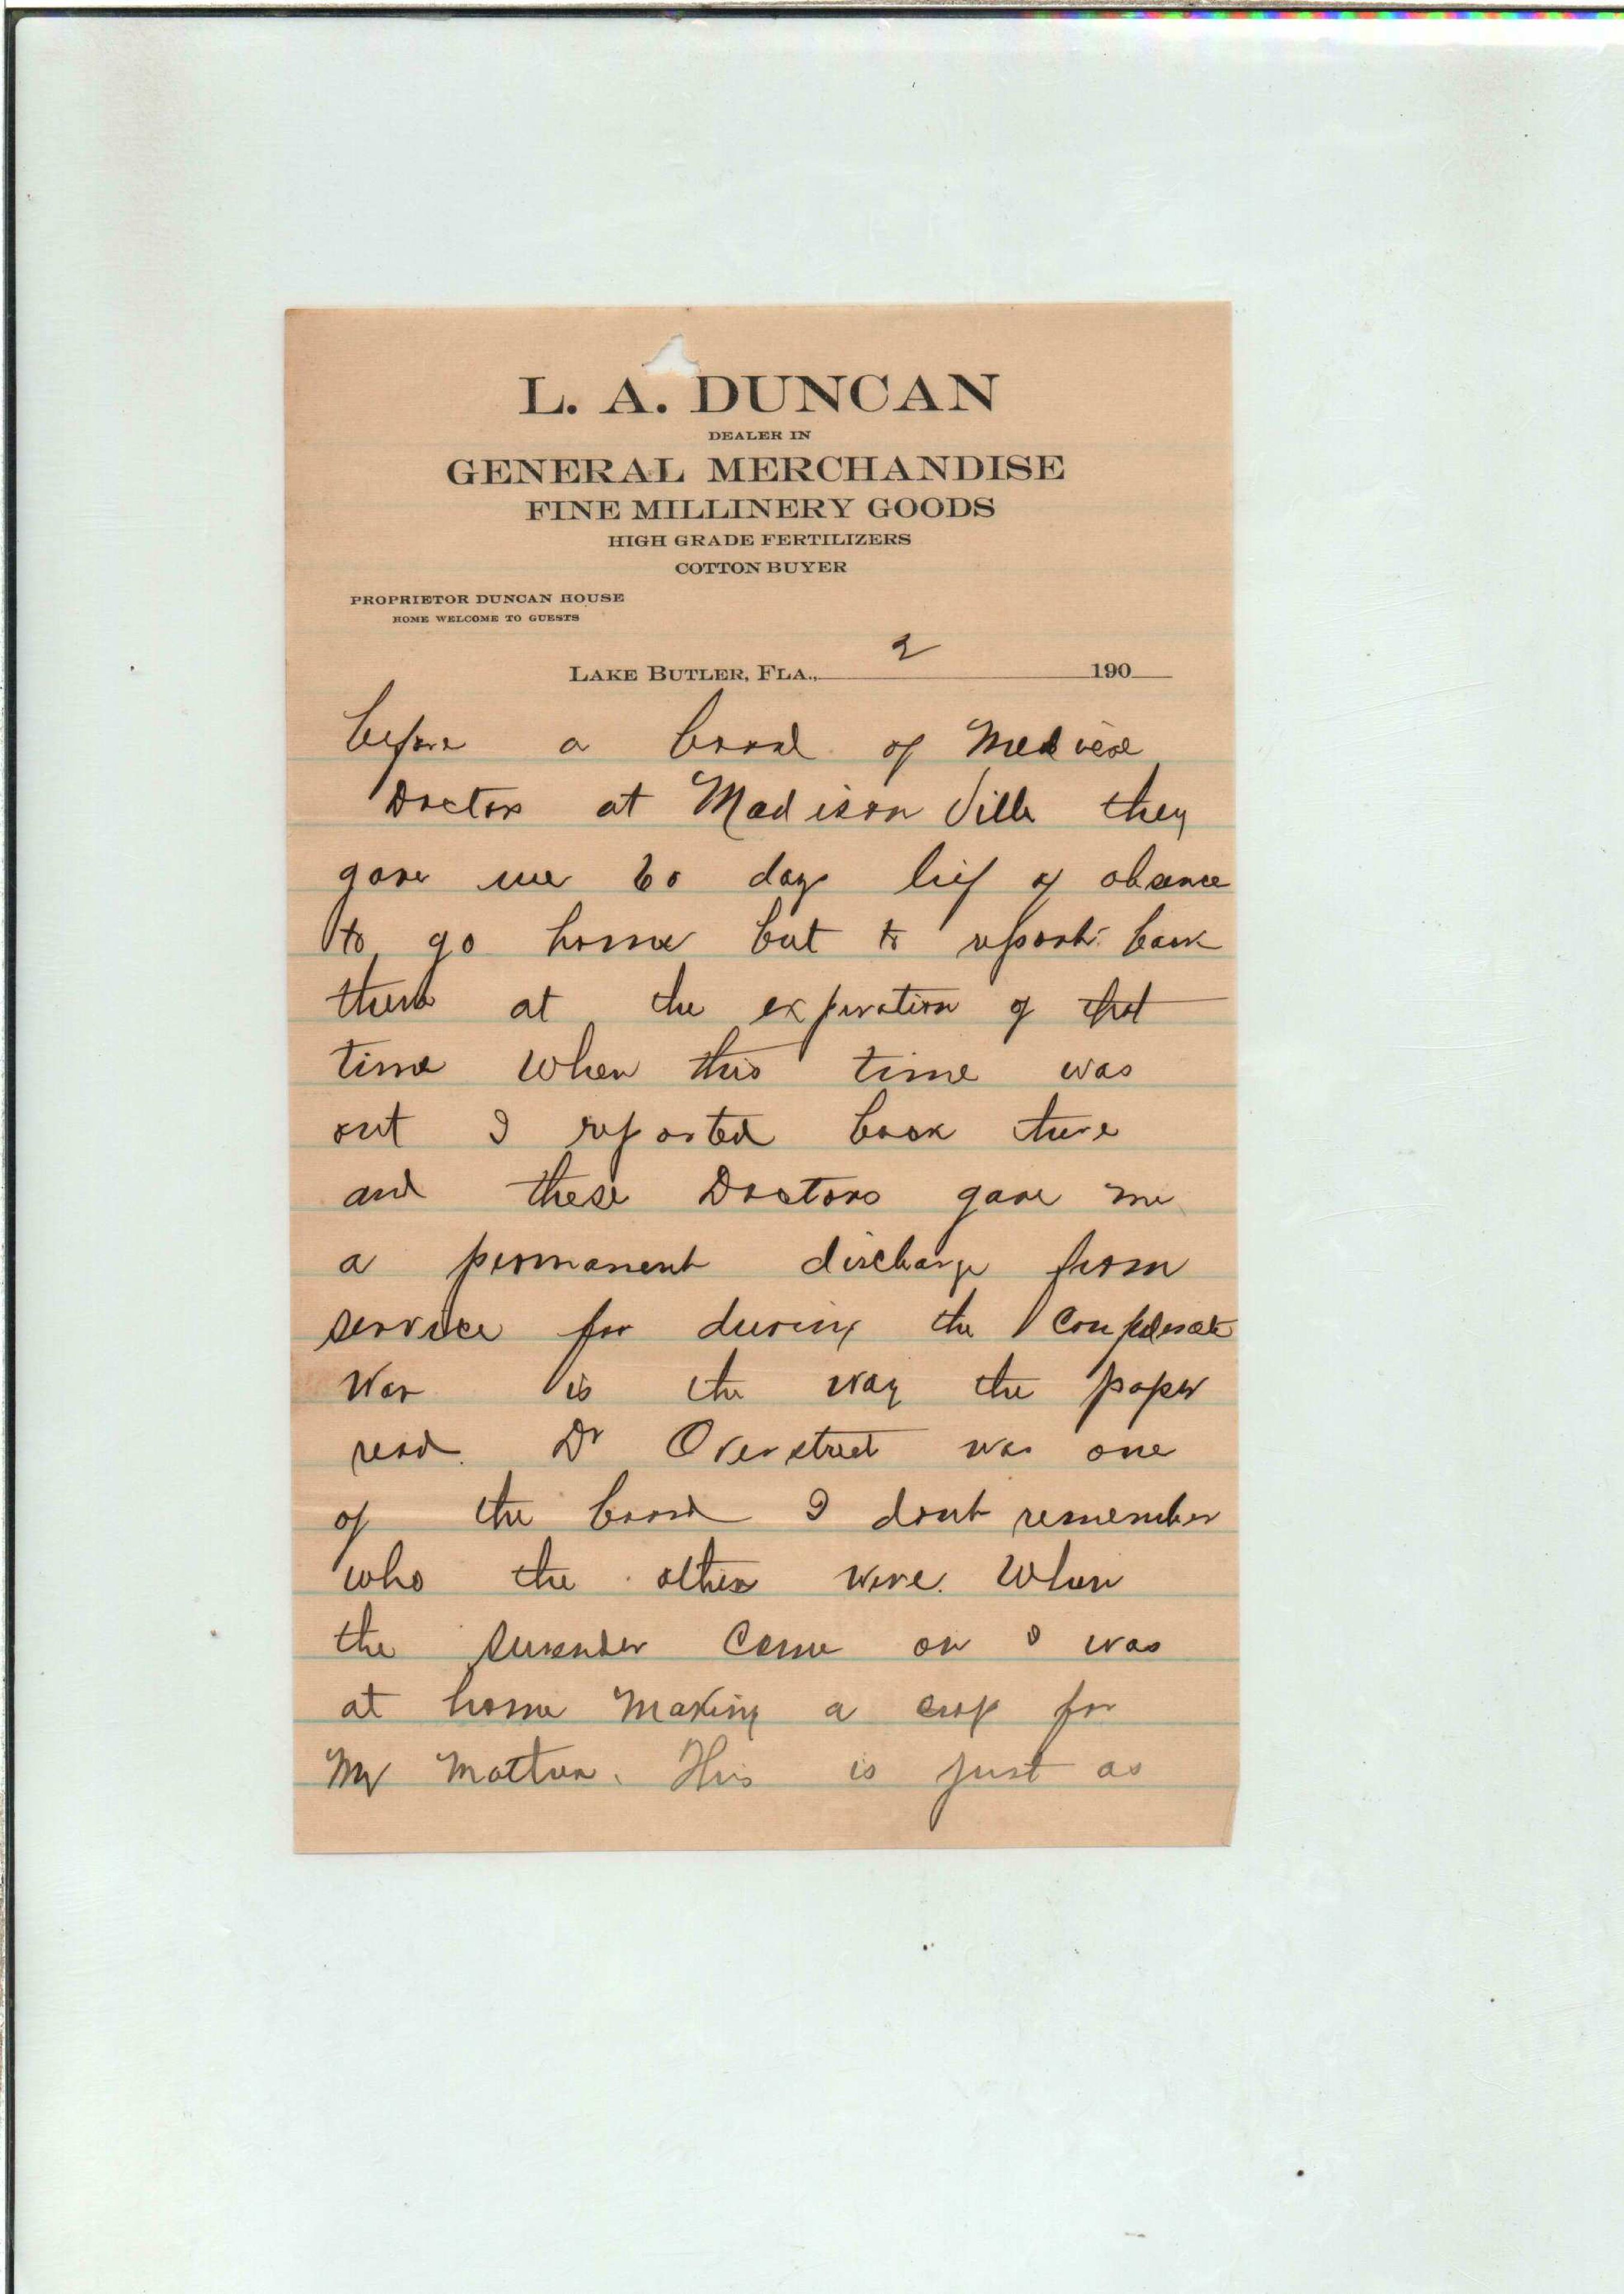 L. A. DUNCAN
DEALER IN
GENERAL MERCHANDISE
FINE MILLINERY GOODS
HIGH GRADE FERTILIZERS
COTTON BUYER
PROPRIETOR DUNCAN HOUSE
HOME WELCOME TO GUESTS
LAKE BUTLER, FLA., 2 190
before a board of Medical
Doctors at Madison Ville they
gave me 60 days lief of absence
to go home but to report back
there at the expiration of that
time When this time was
out I reported back there
and these Doctors gave me
a permanent discharge from
service for during the Confederate
War is the way the paper
read. Dr Overstreet was one
of the board I dont remember
who the others were. When
the surender Came on I was
at home making a crop for
My Mother. This is just as